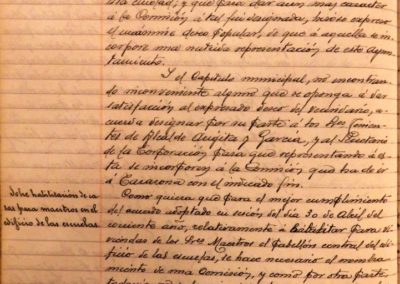 esta ciudad; y que para dar aun mas caracter
á la Comisión á tal fin designada, hacese expreso
el unánime deseo popular, de que á aquella se in-
corpore una nutrida representación de este Ayun-
tamiento.
Y el Capítulo municipal, no encontran-
do inconveniente alguno que se oponga á dar
satisfacción al expresado deseo del vecindario, a-
cuerda designar por su parte á los Sres Tenien-
tes de Alcalde Augita y García, y al Secretario
de la Corporación para que representando á és-
ta se incorporen á la Comisión que ha de ir
á Tarazona con el indicado fin.
Sobre habilitación de ca
sas para maestros en el
edificio de las escuelas.
Como quiera que para el mejor cumplimiento
del acuerdo adoptado en sesión del dia 30 de Abril del
corriente año, relativamente á habilitar para
viviendas de los Sres Maestros el pabellón central del edi-
ficio de las escuelas, se hace necesario el nombra-
miento de una Comisión, y como por otra parte